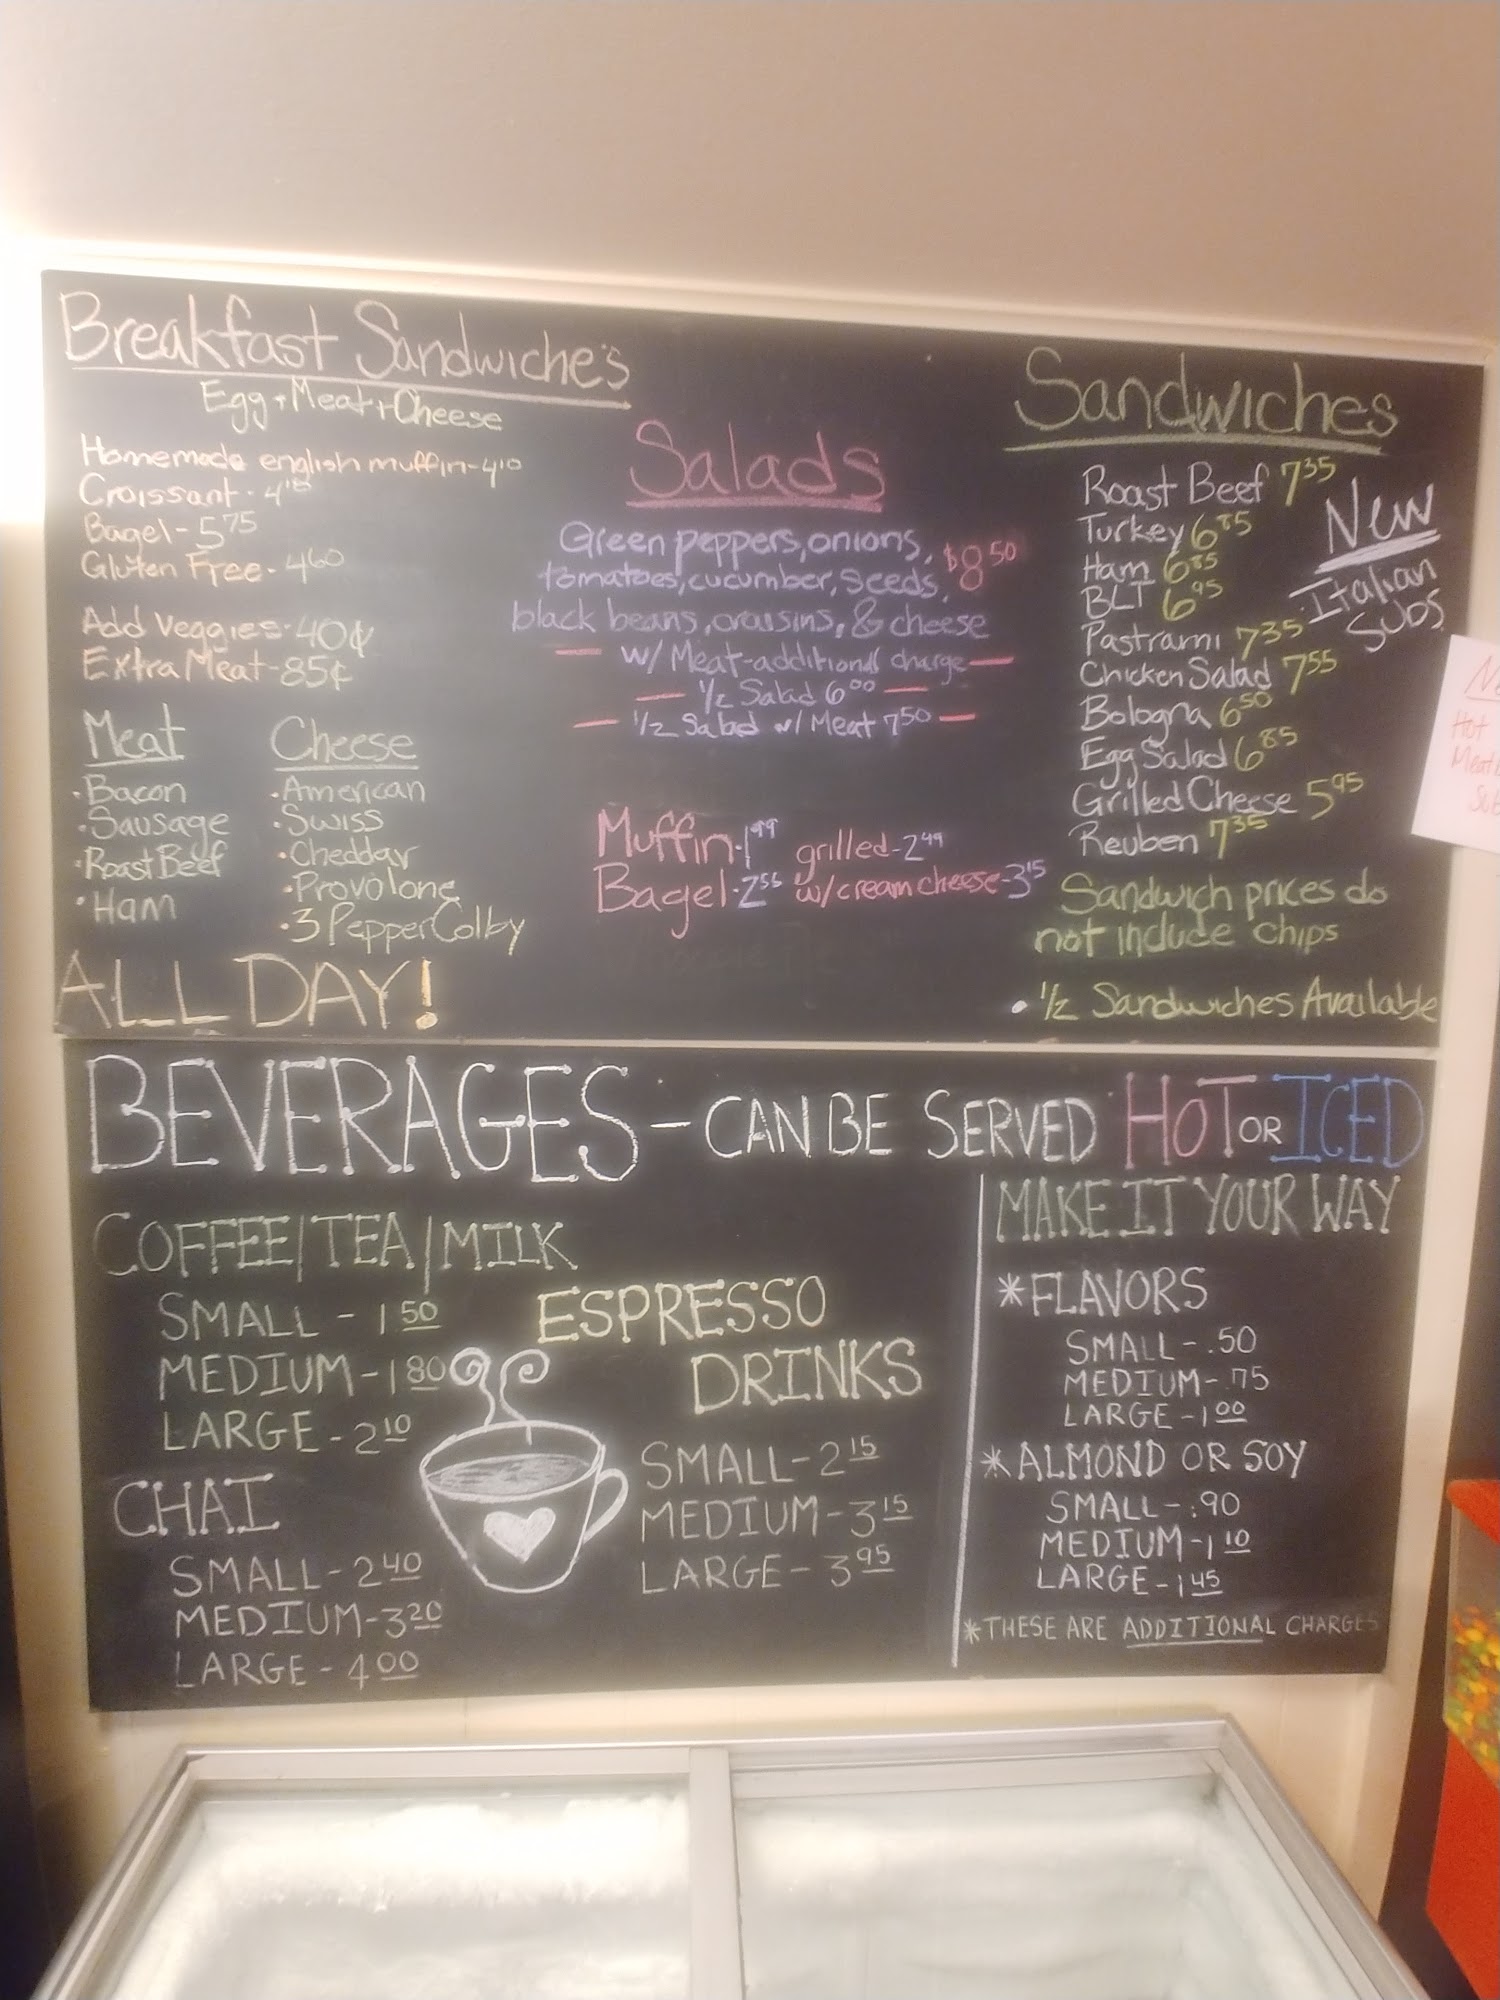 Breakfast Sandwiche's
Egg + Meat + Cheese
Homemade english muffin - 4 10
Croissant - 4
Bagel - 5 75
Gluten Free - 4 60
Add Veggies - 40¢
Extra Meat - 85¢
Meat
· Bacon
· Sausage
· Roast Beef
· Ham
Cheese
· American
· Swiss
· Cheddar
· Provolone
· 3 Pepper Colby
ALL DAY!
Salads
Green peppers, onions,
tomatoes, cucumber, seeds,
black beans, craisins, & cheese
$8 50
w/ Meat - additional charge
1/2 Salad 6 00
1/2 Salad w/ Meat 7 50
Muffin - 1 99 grilled - 2 49
Bagel - 2 55 w/ cream cheese - 3 15
Sandwiches
Roast Beef 7 35
Turkey 6 85
Ham 6 85
BLT 6 95
Pastrami 7 35
Chicken Salad 7 55
Bologna 6 50
Egg Salad 6 85
Grilled Cheese 5 95
Reuben 7 35
New
Italian
Subs
Sandwich prices do
not include chips
· 1/2 Sandwiches Available
Hot
BEVERAGES - CAN BE SERVED HOT OR ICED
COFFEE/TEA/MILK
SMALL - 1 50
MEDIUM - 1 80
LARGE - 2 10
CHAI
SMALL - 2 40
MEDIUM - 3 20
LARGE - 4 00
ESPRESSO
DRINKS
SMALL - 2 15
MEDIUM - 3 15
LARGE - 3 95
MAKE IT YOUR WAY
* FLAVORS
SMALL - .50
MEDIUM - .75
LARGE - 1 00
* ALMOND OR SOY
SMALL - .90
MEDIUM - 1 10
LARGE - 1 45
* THESE ARE ADDITIONAL CHARGES